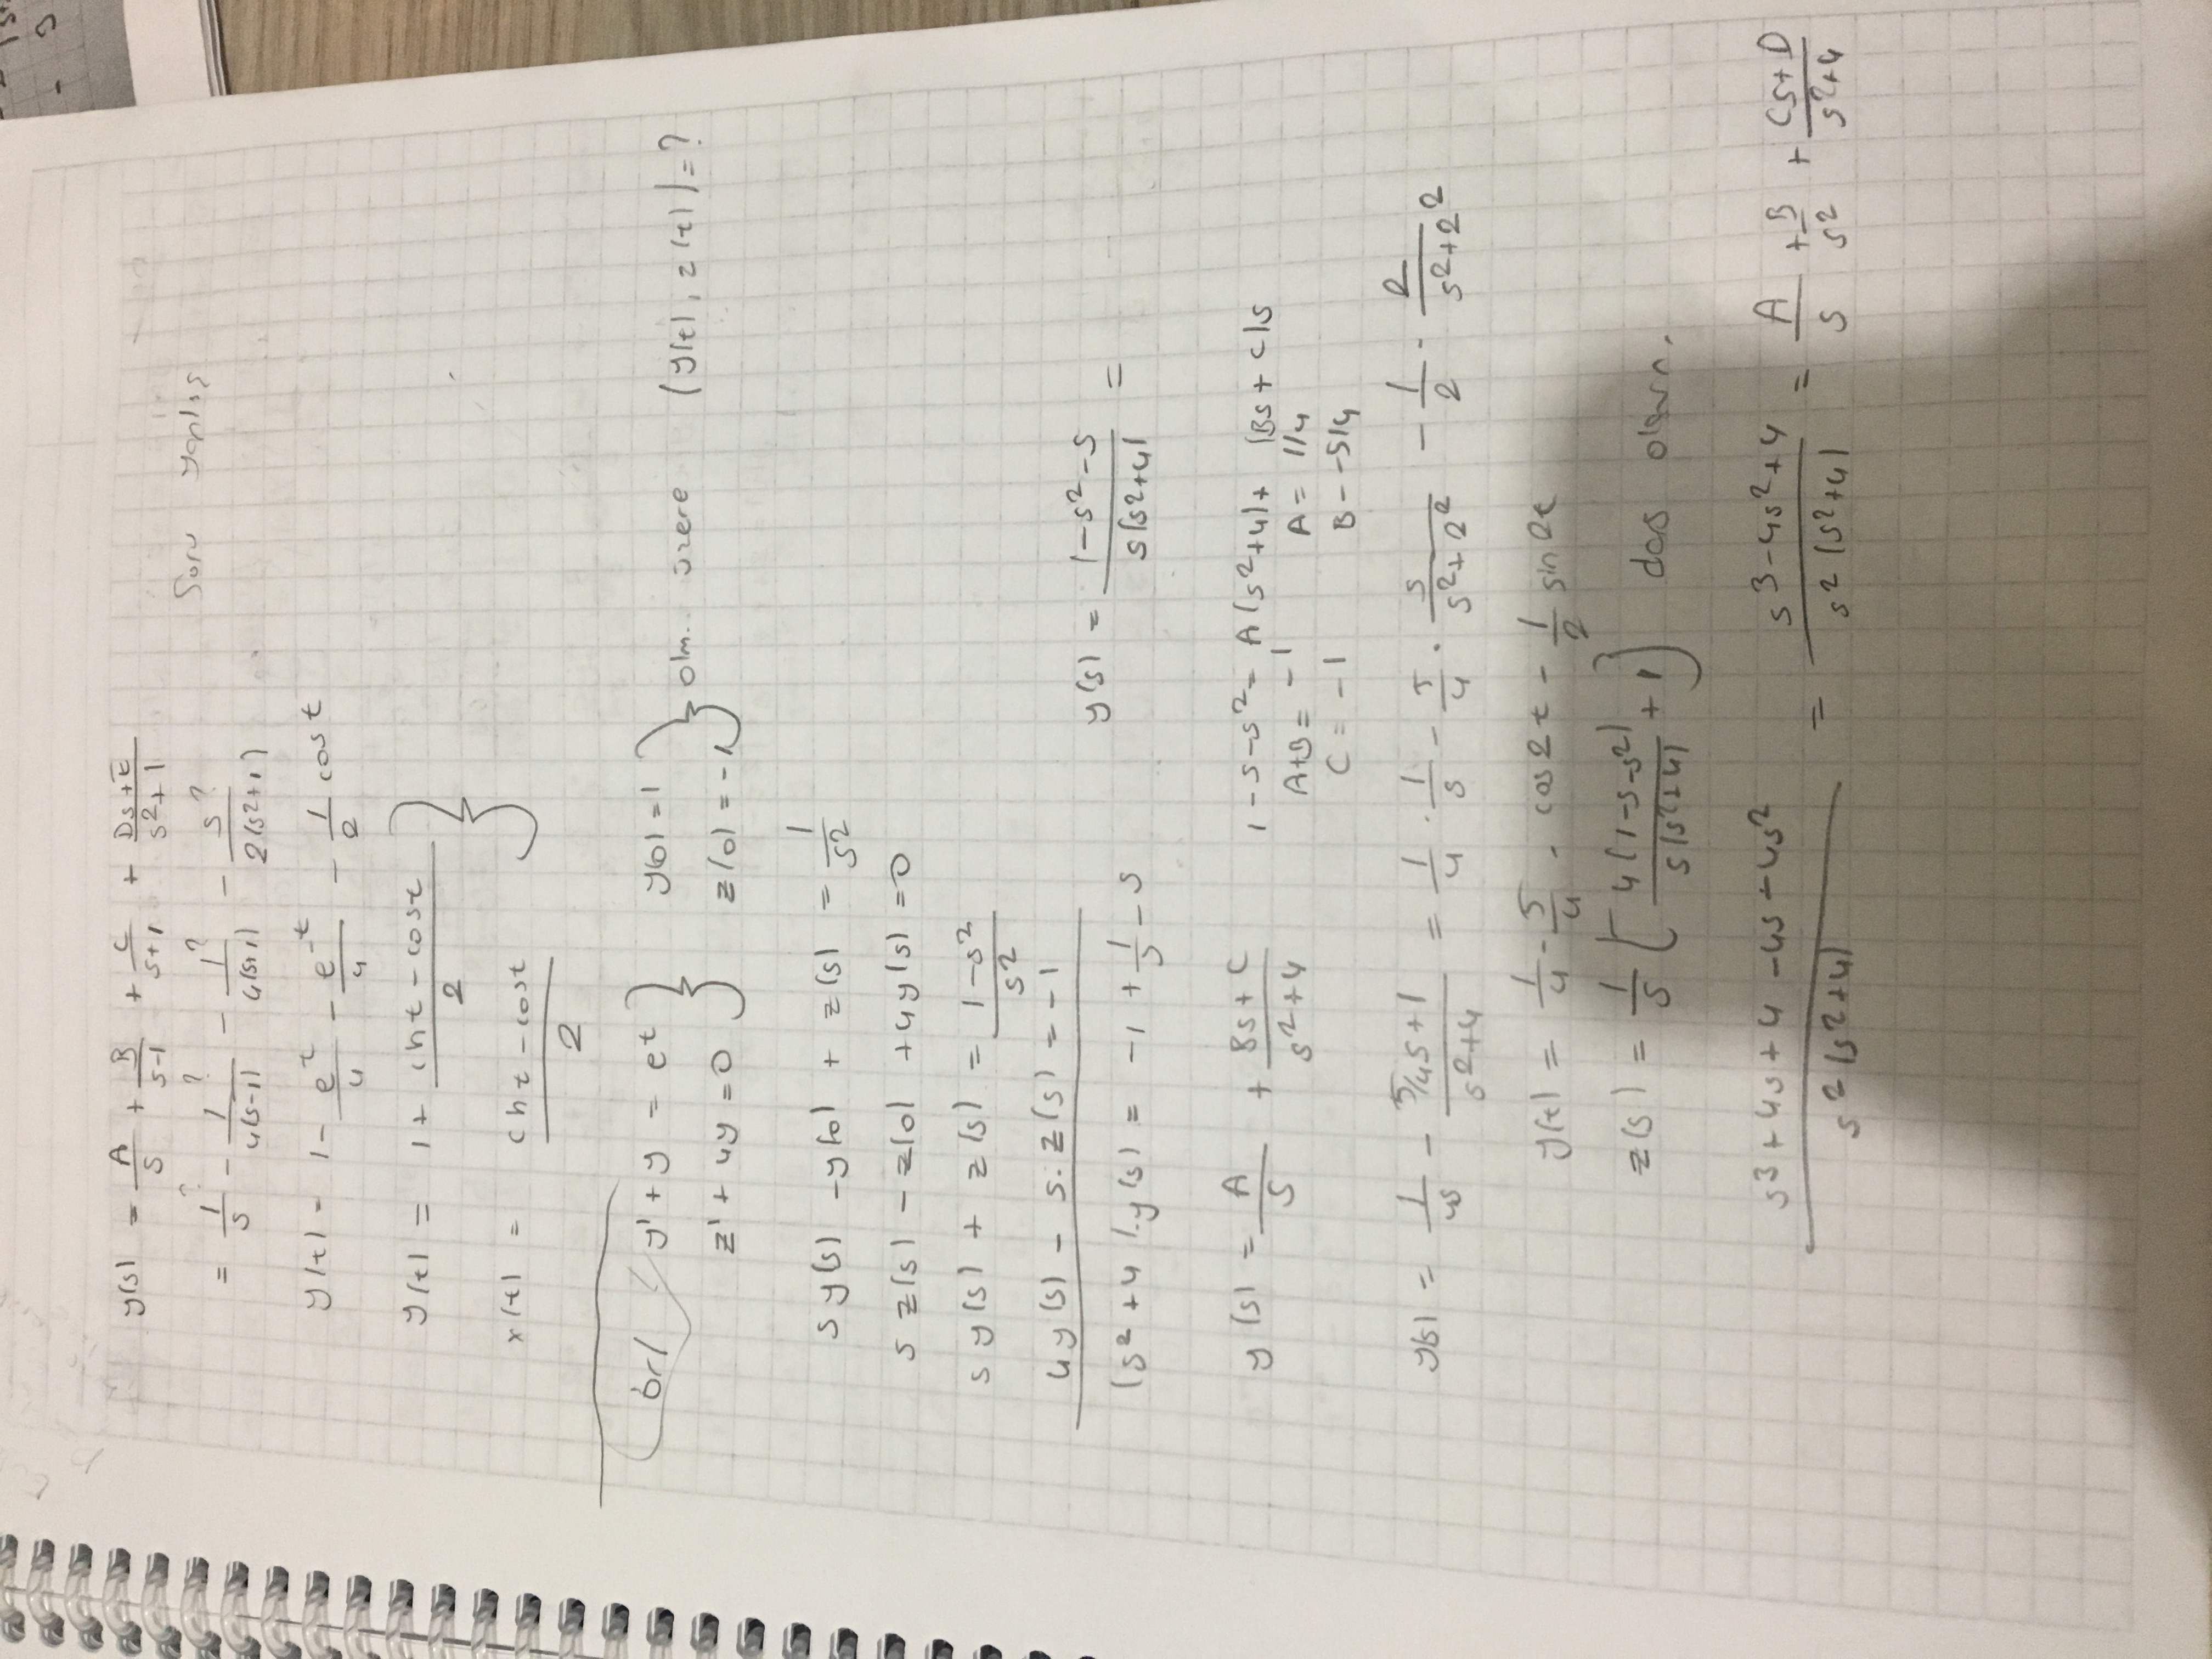 y(s) = A/s + B/(s-1) + C/(s+1) + (Ds+E)/(s²+1)
Soru yanlış
= 1?/s - 1?/4(s-1) - 1?/4(s+1) - s?/2(s²+1)
y(t) = 1 - e^t/4 - e^-t/4 - 1/2 cost
y(t) = 1 + (cht - cost)/2 }
x(t) = (cht - cost)/2
ör/ y' + y = et } y(0) = 1 } olm. üzere (y(t), z(t)) = ?
z' + 4y = 0 z(0) = -1
s y(s) - y(0) + z(s) = 1/s²
s z(s) - z(0) + 4y(s) = 0
s y(s) + z(s) = (1-s²)/s²
4y(s) - s.z(s) = -1
(s²+4).y(s) = -1 + 1/s - s
y(s) = (1-s²-s)/s(s²+4) =
y(s) = A/s + (Bs+C)/(s²+4) 1-s-s² = A(s²+4) + (Bs+C)s
A+B = -1 A = 1/4
C = -1 B = -5/4
y(s) = 1/4s - (5/4s+1)/(s²+4) = 1/4 . 1/s - 5/4 . s/(s²+2²) - 1/2 . 2/(s²+2²)
y(t) = 1/4 - 5/4 . cos2t - 1/2 sin2t
z(s) = 1/s [4(1-s-s²)/s(s²+4) + 1]
(s³+4s+4-4s-4s²)/s²(s²+4) = (s³-4s²+4)/s²(s²+4) = A/s + B/s² + (Cs+D)/(s²+4)